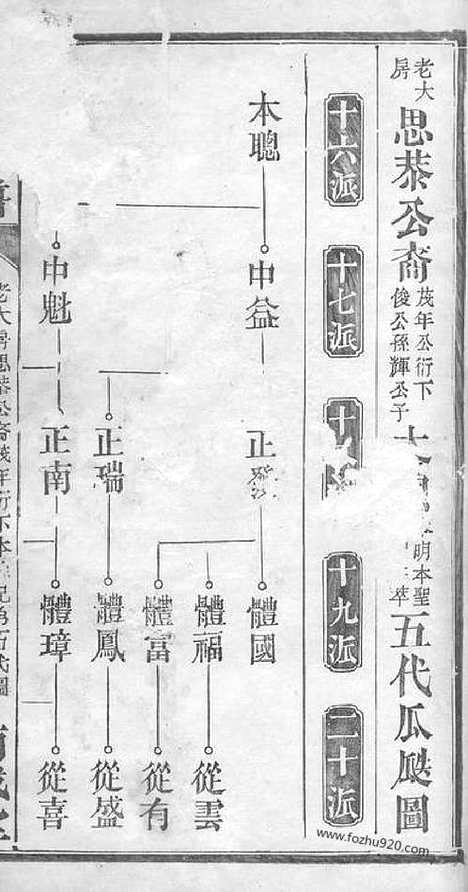 老大房
思恭公裔
茂年公衍下
俊公孫輝公子
明本聖
五代瓜瓞圖
十六派
十七派
十
十九派
二十派
本聰
中益
正
體國
體福
從雲
體富
從有
正瑞
體鳳
從盛
中魁
正南
體璋
從喜
老大房思恭公裔茂年衍下本
五代圖
www.fozhu920.com